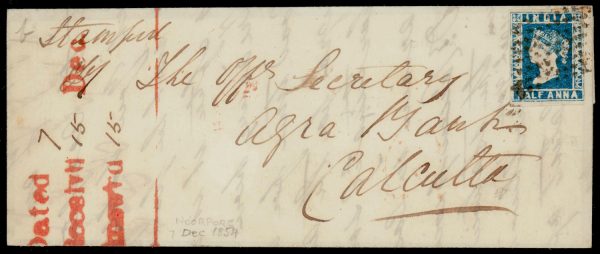 Stamped
INDIA
HALF ANNA
The Offg Secretary
Agra Bank
Calcutta
Dec
Dated 7
Received 15
Answered 15
7 Dec 1854